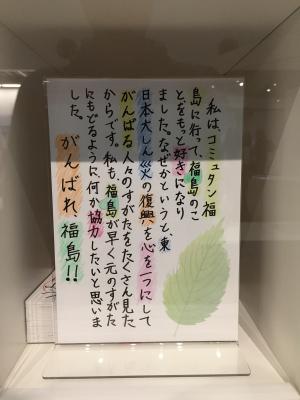 私は、コミュタン福
島に行って、福島のこ
とをもっと好きになり
ました。なぜかというと、東
日本大しん災の復興を心を一つにして
がんばる人々のすがたをたくさん見た
からです。私も、福島が早く元のすがた
にもどるように、何か協力したいと思いま
した。がんばれ、福島!!